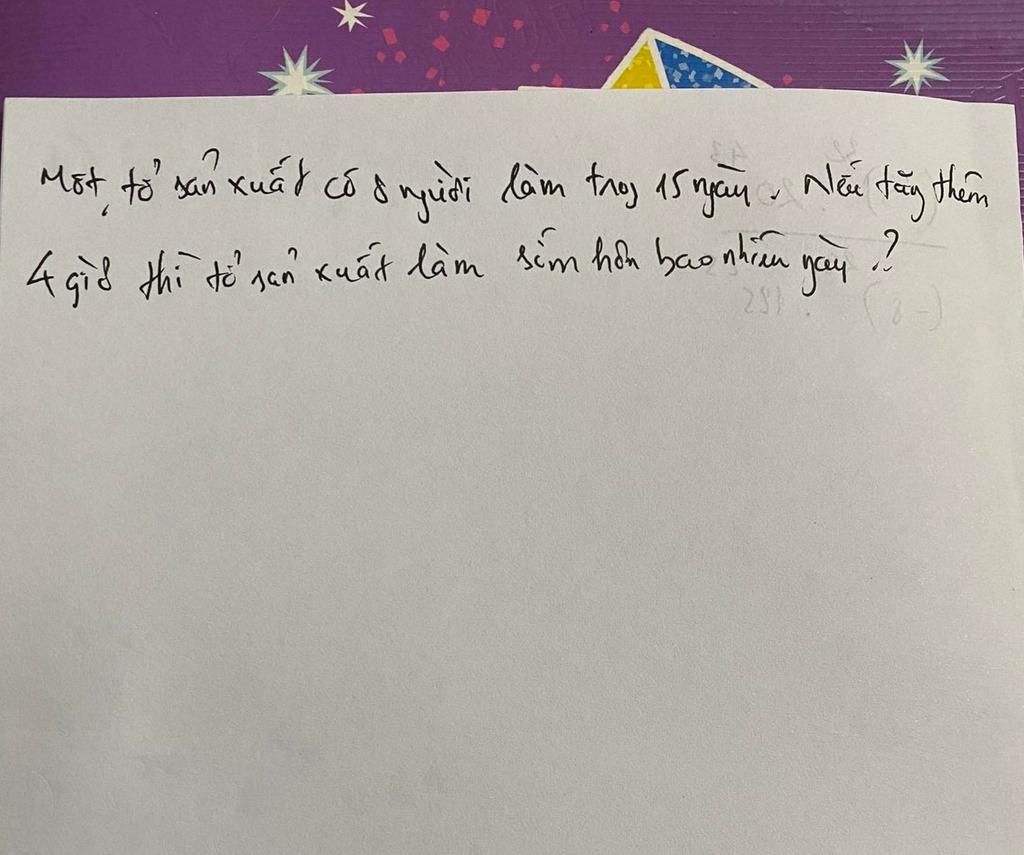 Một tổ sản xuất có 8 người làm trog 15 ngày. Nếu tăg thêm
4 giờ thì tổ sản xuất làm sớm hơn bao nhiêu gày ?